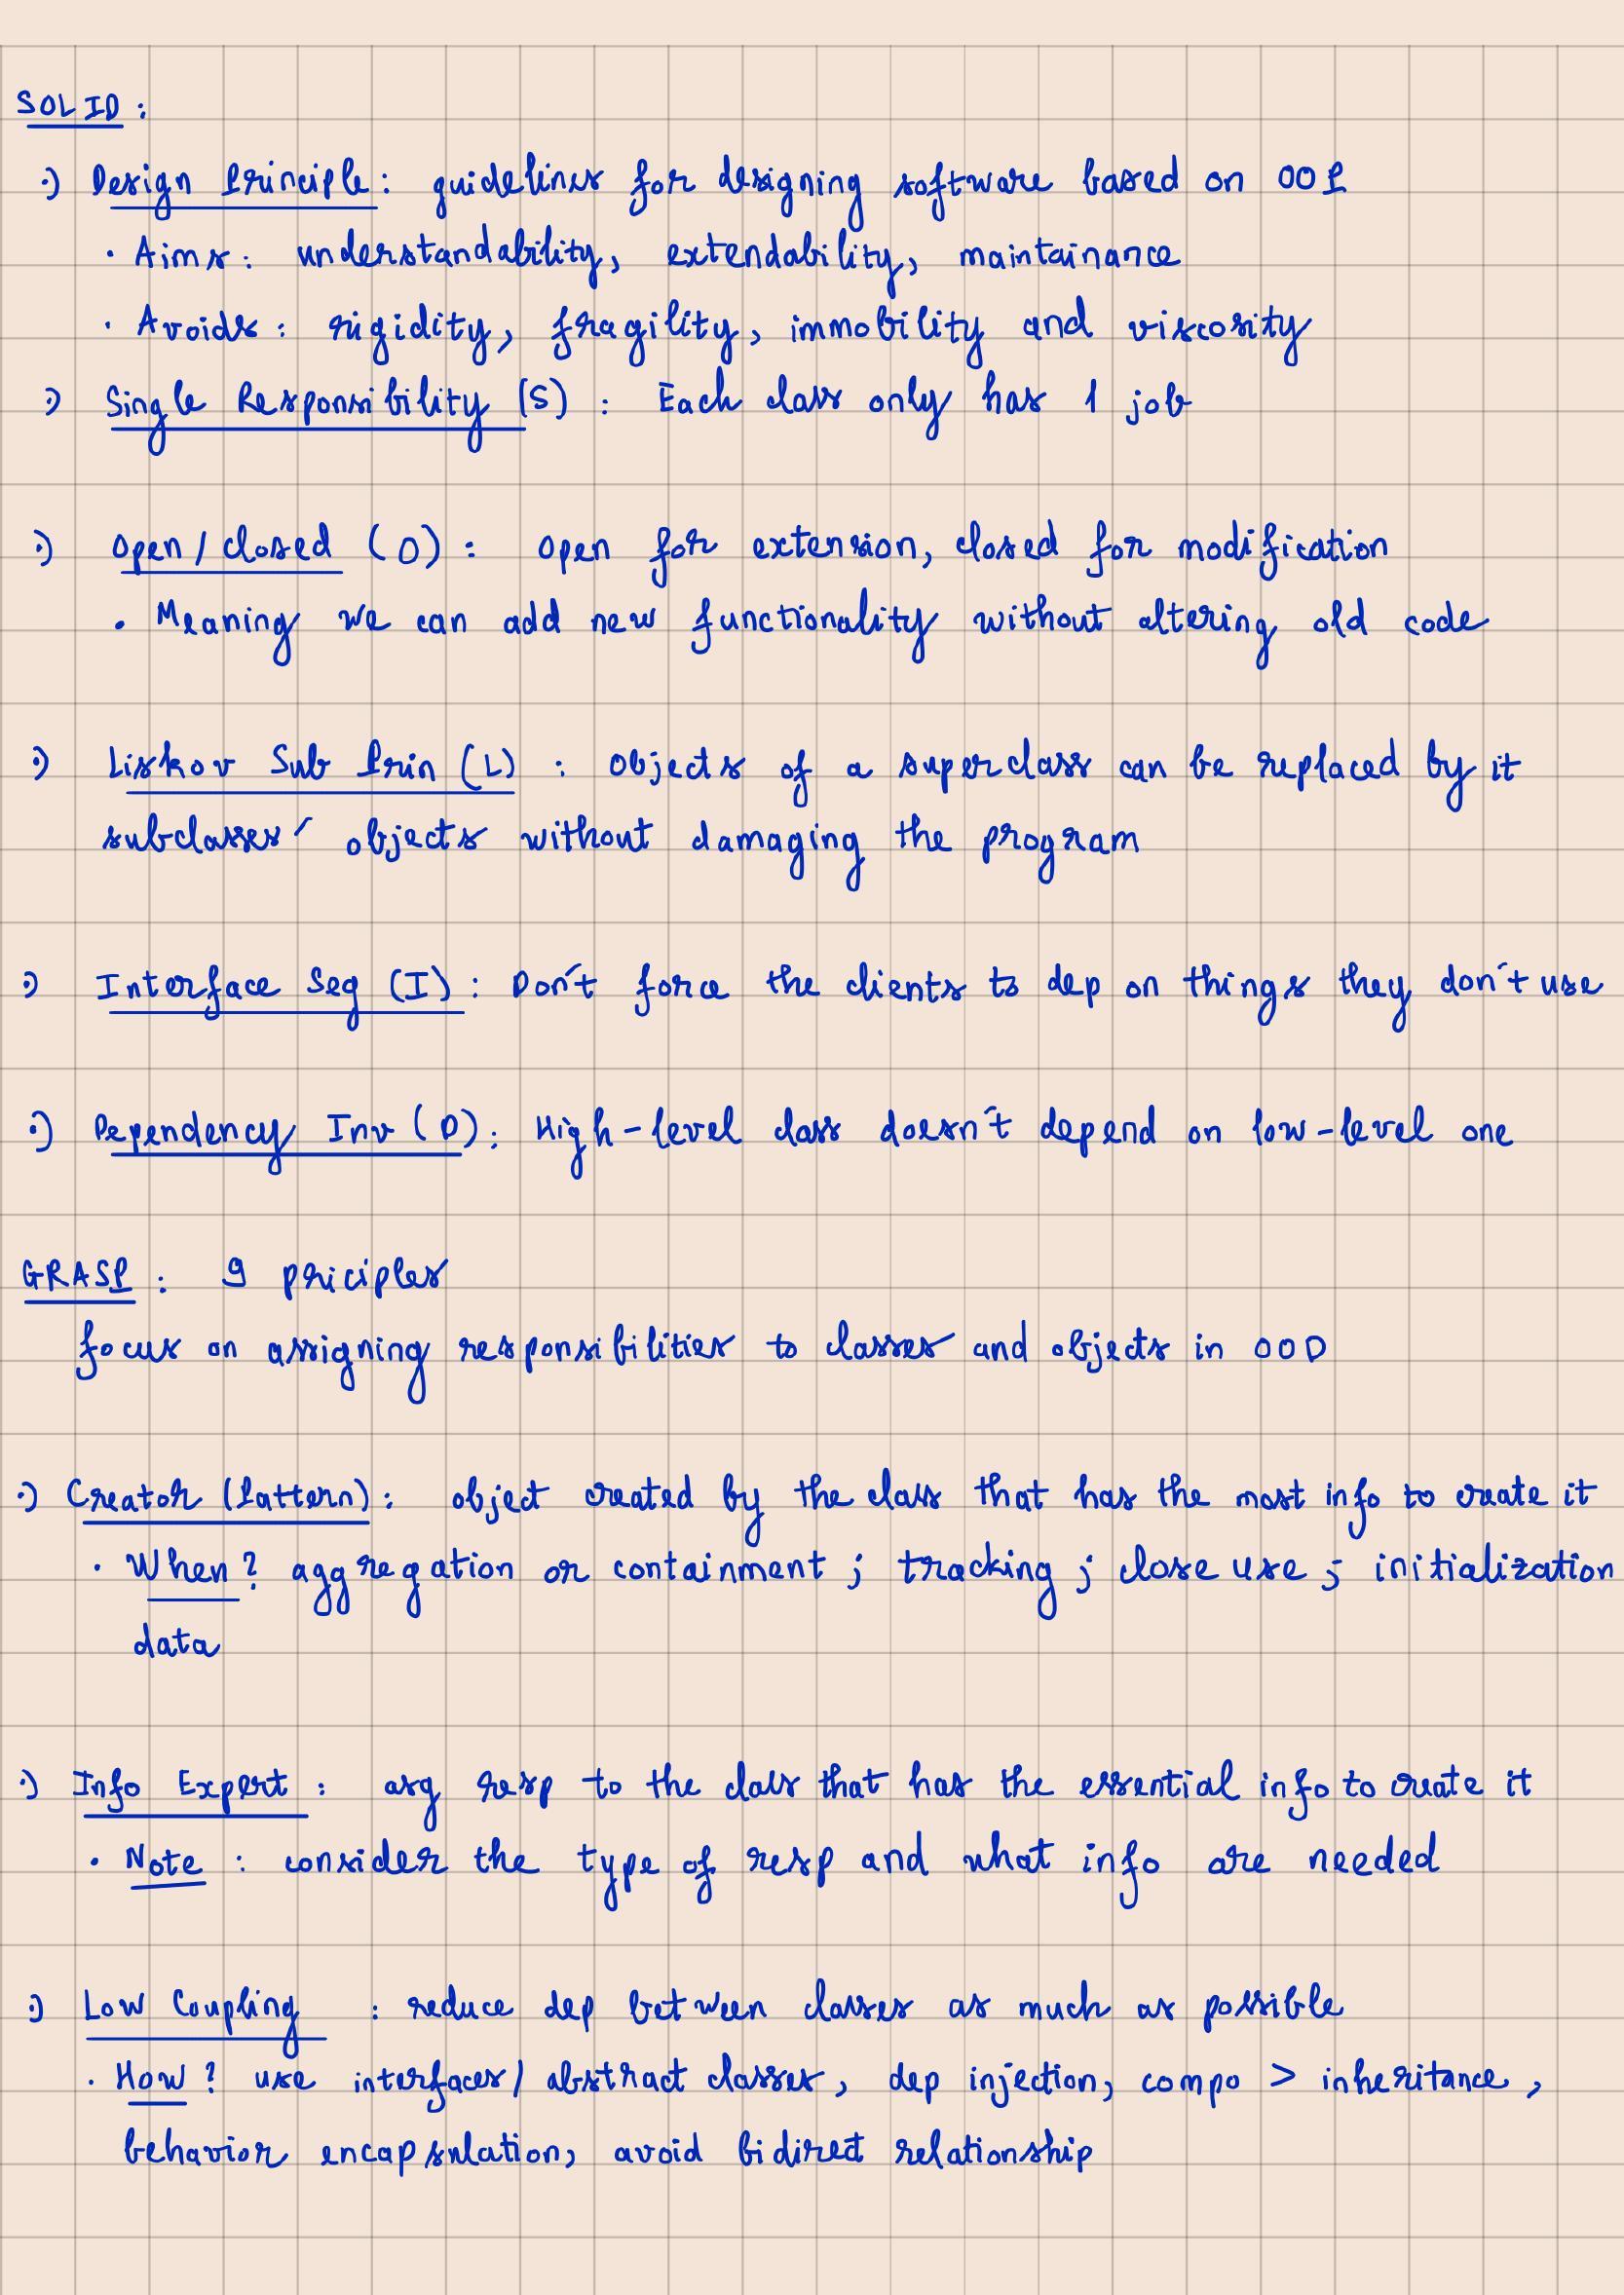 SOLID :
·) Design Principle : guidelines for designing software based on OOP
· Aims : understandability, extendability, maintainance
· Avoids : rigidity, fragility, immobility and viscosity
·) Single Responsibility (S) : Each class only has 1 job
·) Open / closed (O) : open for extension, closed for modification
· Meaning we can add new functionality without altering old code
·) Liskov Sub Prin (L) : objects of a superclass can be replaced by it
subclasses' objects without damaging the program
·) Interface Seg (I) : Don't force the clients to dep on things they don't use
·) Dependency Inv (D) : High-level class doesn't depend on low-level one
GRASP : 9 priciples
focus on assigning responsibilities to classes and objects in OOD
·) Creator (Pattern) : object created by the class that has the most info to create it
· When ? aggregation or containment ; tracking ; close use ; initialization
data
·) Info Expert : asg resp to the class that has the essential info to create it
· Note : consider the type of resp and what info are needed
·) Low Coupling : reduce dep between classes as much as possible
· How ? use interfaces / abstract classes, dep injection, compo > inheritance,
behavior encapsulation, avoid bidirect relationship